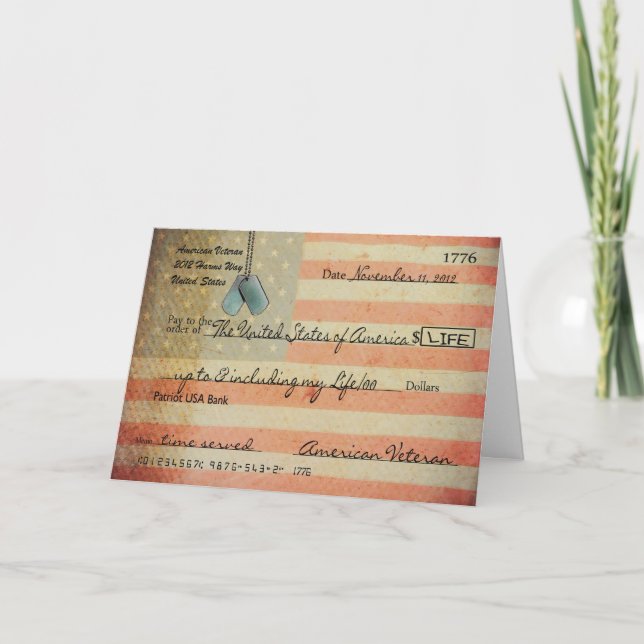 American Veteran
2012 Harms Way
United States
1776
Date November 11, 2012
Pay to the
order of The United States of America $ LIFE
up to & including my Life/00 Dollars
Patriot USA Bank
Memo time served American Veteran
001234567C 9876-543-2" 1776